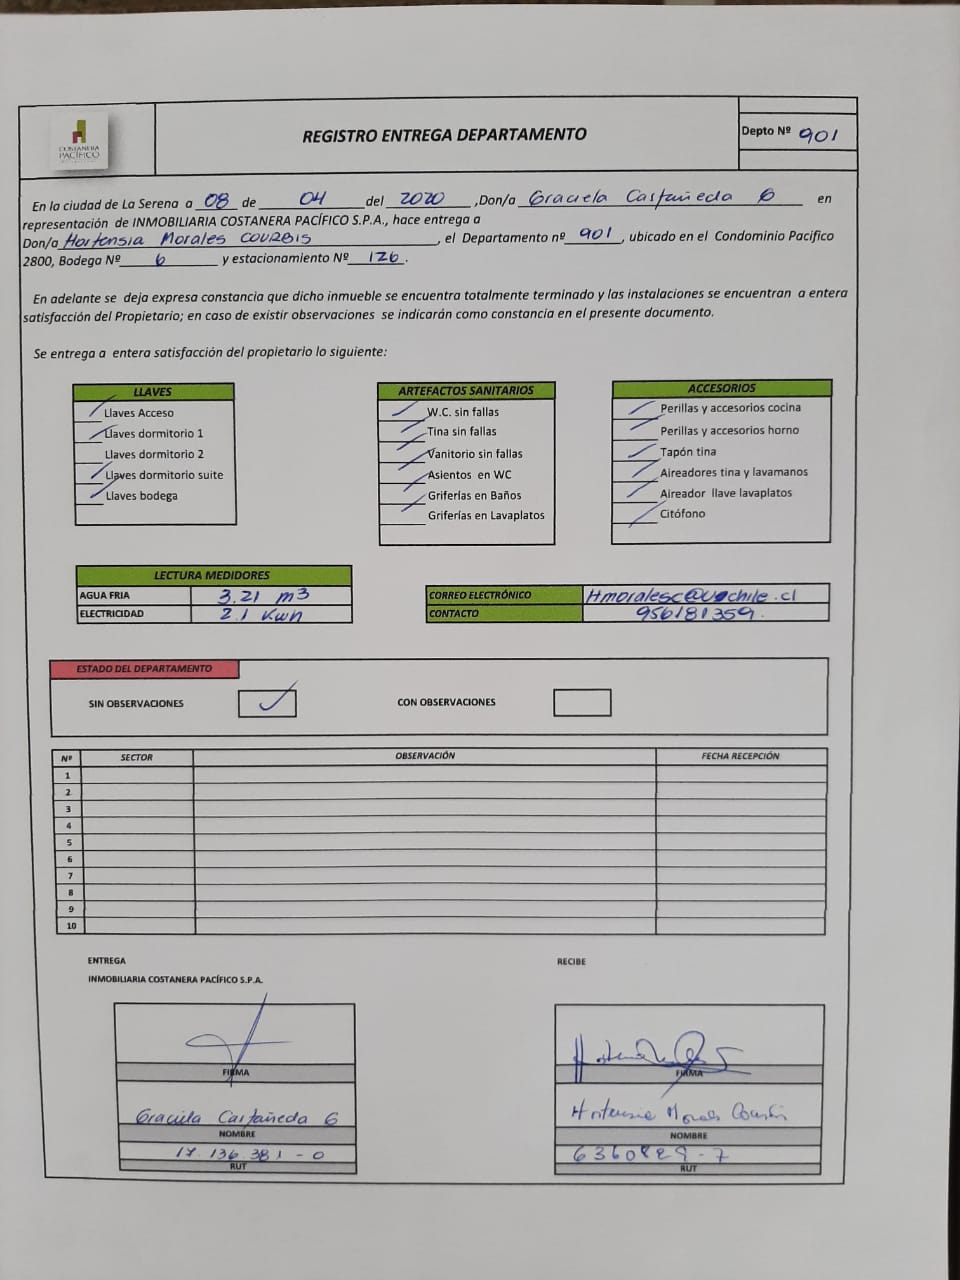 COSTANERA
PACÍFICO
REGISTRO ENTREGA DEPARTAMENTO
Depto Nº 901
En la ciudad de La Serena a 08 de 04 del 2020 ,Don/a Graciela Castañeda G en
representación de INMOBILIARIA COSTANERA PACÍFICO S.P.A., hace entrega a
Don/a Hortensia Morales COURBIS , el Departamento nº 901 , ubicado en el Condominio Pacifico
2800, Bodega Nº 6 y estacionamiento Nº 126 .
En adelante se deja expresa constancia que dicho inmueble se encuentra totalmente terminado y las instalaciones se encuentran a entera
satisfacción del Propietario; en caso de existir observaciones se indicarán como constancia en el presente documento.
Se entrega a entera satisfacción del propietario lo siguiente:
LLAVES
Llaves Acceso
Llaves dormitorio 1
Llaves dormitorio 2
Llaves dormitorio suite
Llaves bodega
ARTEFACTOS SANITARIOS
W.C. sin fallas
Tina sin fallas
Vanitorio sin fallas
Asientos en WC
Griferías en Baños
Griferías en Lavaplatos
ACCESORIOS
Perillas y accesorios cocina
Perillas y accesorios horno
Tapón tina
Aireadores tina y lavamanos
Aireador llave lavaplatos
Citófono
LECTURA MEDIDORES
AGUA FRIA 3,21 m3
ELECTRICIDAD 2.1 Kwn
CORREO ELECTRÓNICO Hmoralesc@uchile.cl
CONTACTO 956181359.
ESTADO DEL DEPARTAMENTO
SIN OBSERVACIONES
CON OBSERVACIONES
Nº SECTOR OBSERVACIÓN FECHA RECEPCIÓN
1
2
3
4
5
6
7
8
9
10
ENTREGA
INMOBILIARIA COSTANERA PACÍFICO S.P.A.
FIRMA
Graciela Castañeda G
NOMBRE
17.136.381-0
RUT
RECIBE
FIRMA
Hortensia Morales Courbis
NOMBRE
6360829-7
RUT